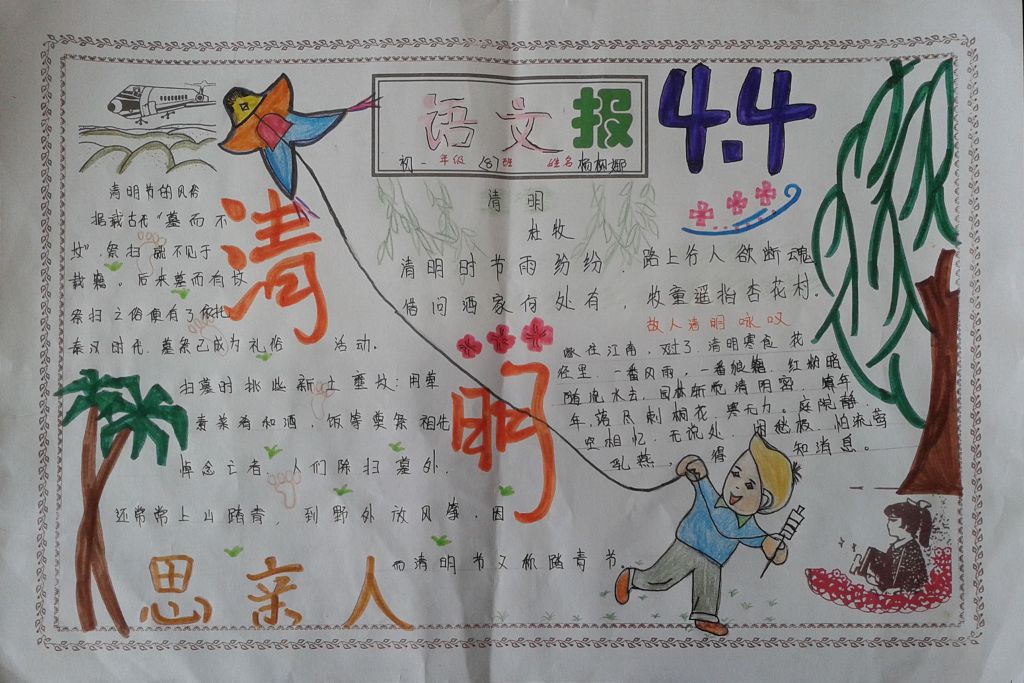 语文报
初一年级(8)班 姓名
4.4
清明
思亲人
清明节的风俗
据载古代“墓而不
坟”.祭扫 不见于
载籍。后来墓而有坟
祭扫之俗便有了依托
秦汉时代.墓祭已成为礼俗 活动。
扫墓时挑些新土壅坟;用草
素菜肴和酒,饭等奠祭祖先
悼念亡者.人们除扫墓外.
还常常上山踏青,到野外放风筝.因
而清明节又称踏青节.
清明
杜牧
清明时节雨纷纷.路上行人欲断魂
借问酒家何处有,牧童遥指杏花村.
故人清明咏叹
江南,对了.清明寒食.花
径里.一番风雨,一番狼籍.红粉暗
随流水去.园林渐觉清阴密.年
年.落尽刺桐花.寒无力.庭院静.
空相忆.无说处.闲愁极.怕流莺
乳燕. 得 知消息。